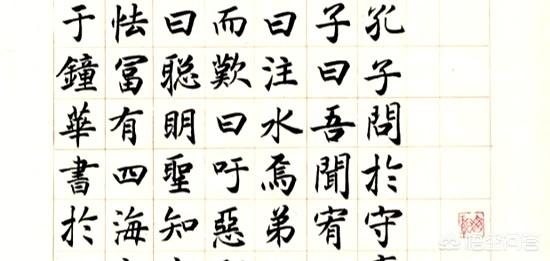 孔子問於守
子曰吾聞宥
曰注水焉弟
而歎曰吁惡
曰聰明聖知
怯冨有四海
于鐘華書於
悟空问答